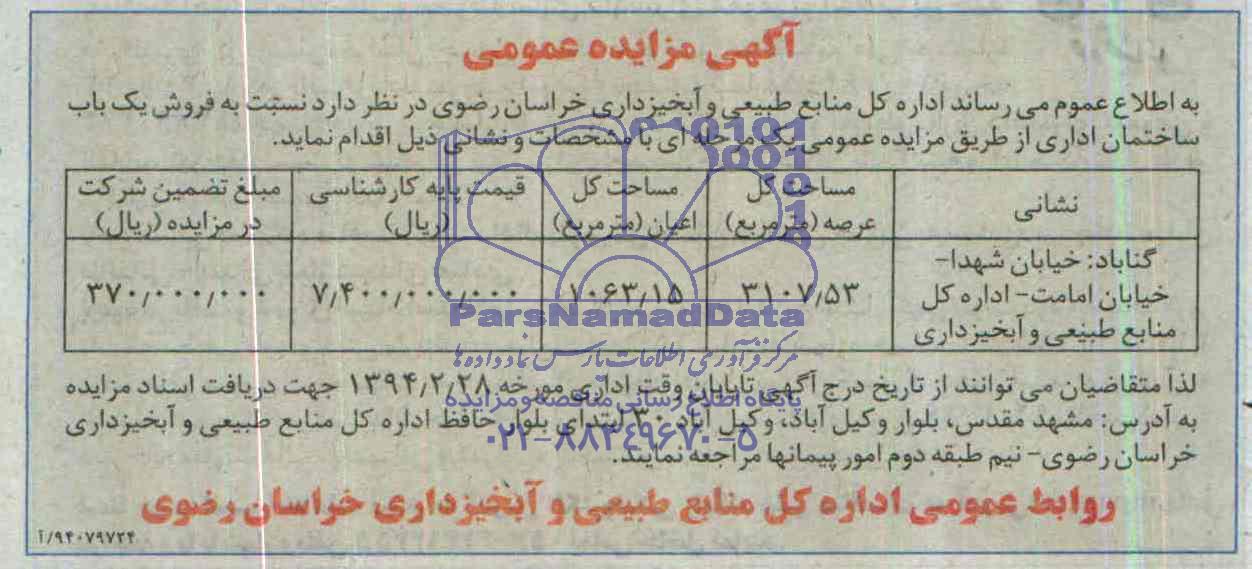 آگهی مزایده عمومی
به اطلاع عموم می رساند اداره کل منابع طبیعی و آبخیزداری خراسان رضوی در نظر دارد نسبت به فروش یک باب
ساختمان اداری از طریق مزایده عمومی یک مرحله ای با مشخصات و نشانی ذیل اقدام نماید.
نشانی
مساحت کل
عرصه (مترمربع)
مساحت کل
اعیان (مترمربع)
قیمت پایه کارشناسی
(ریال)
مبلغ تضمین شرکت
در مزایده (ریال)
گناباد: خیابان شهدا-
خیابان امامت- اداره کل
منابع طبیعی و آبخیزداری
۳۱۰۷٫۵۳
۱۰۶۳٫۱۵
۷٫۴۰۰٫۰۰۰٫۰۰۰
۳۷۰٫۰۰۰٫۰۰۰
لذا متقاضیان می توانند از تاریخ درج آگهی تاپایان وقت اداری مورخه ۱۳۹۴٫۲٫۲۸ جهت دریافت اسناد مزایده
به آدرس: مشهد مقدس، بلوار وکیل آباد، وکیل آباد ۳۰ ابتدای بلوار حافظ اداره کل منابع طبیعی و آبخیزداری
خراسان رضوی- نیم طبقه دوم امور پیمانها مراجعه نمایند.
روابط عمومی اداره کل منابع طبیعی و آبخیزداری خراسان رضوی
۹۴۰۷۹۷۲۴/آ
ParsNamadData
مرکز فرآوری اطلاعات پارس نماد داده ها
پایگاه اطلاع رسانی مناقصه و مزایده
۰۲۱-۸۸۳۴۹۶۷۰-۵